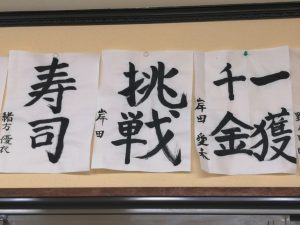 寿司
緒方優衣
挑戦
岸田
一獲
千金
岸田愛夫